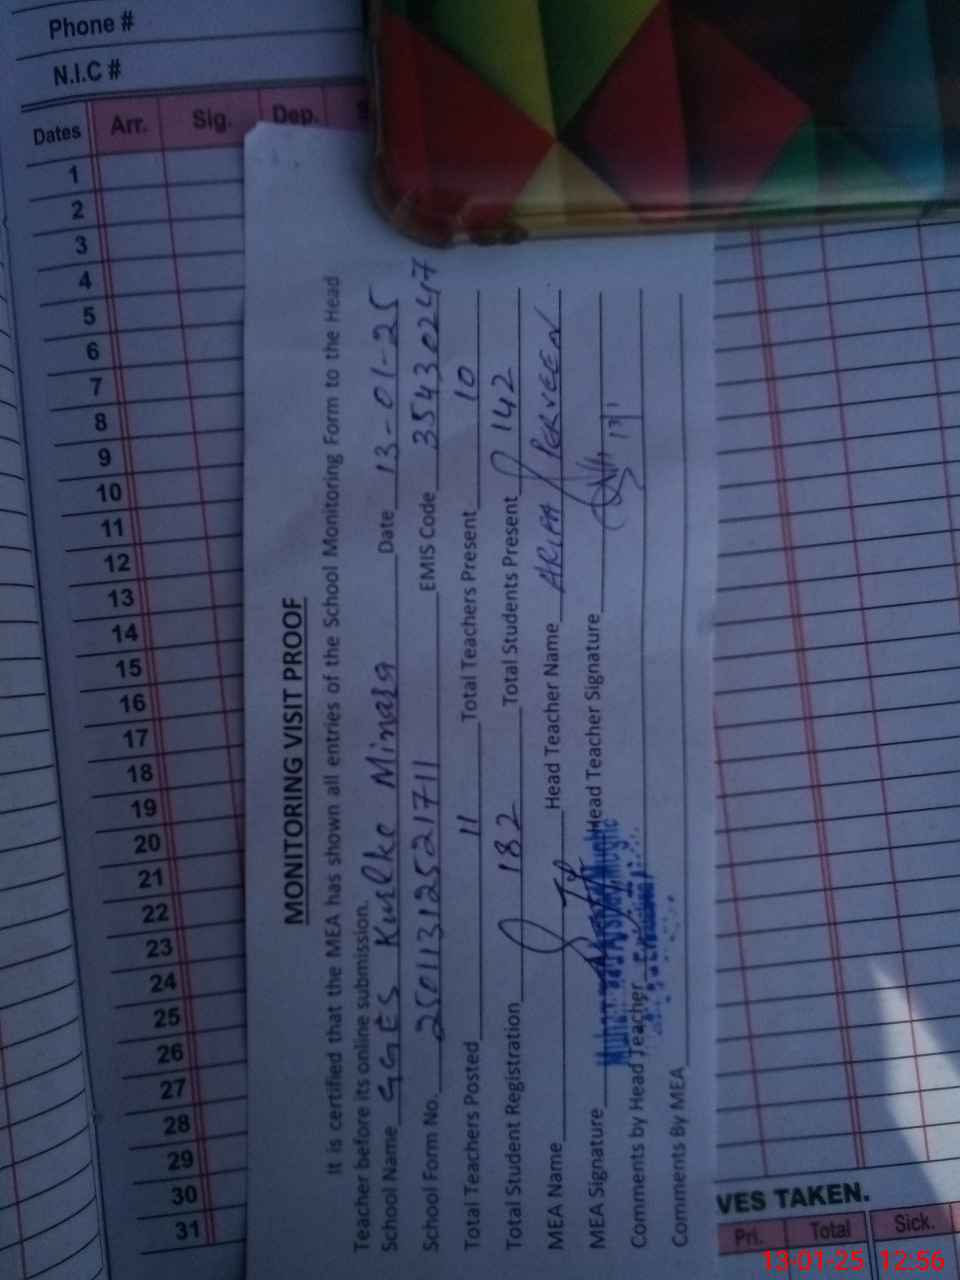 Phone #
N.I.C #
Dates Arr. Sig. Dep.
1
2
3
4
5
6
7
8
9
10
11
12
13
14
15
16
17
18
19
20
21
22
23
24
25
26
27
28
29
30
31
MONITORING VISIT PROOF
It is certified that the MEA has shown all entries of the School Monitoring Form to the Head
Teacher before its online submission.
School Name GGES Kurlke Minara Date 13-01-25
School Form No. 2501131252171 1 EMIS Code 35430247
Total Teachers Posted 11 Total Teachers Present 10
Total Student Registration 182 Total Students Present 142
MEA Name Head Teacher Name ARIFA PERVEEN
MEA Signature Head Teacher Signature
Comments by Head Teacher
Comments By MEA
VES TAKEN.
Pri. Total Sick.
13-01-25 12:56